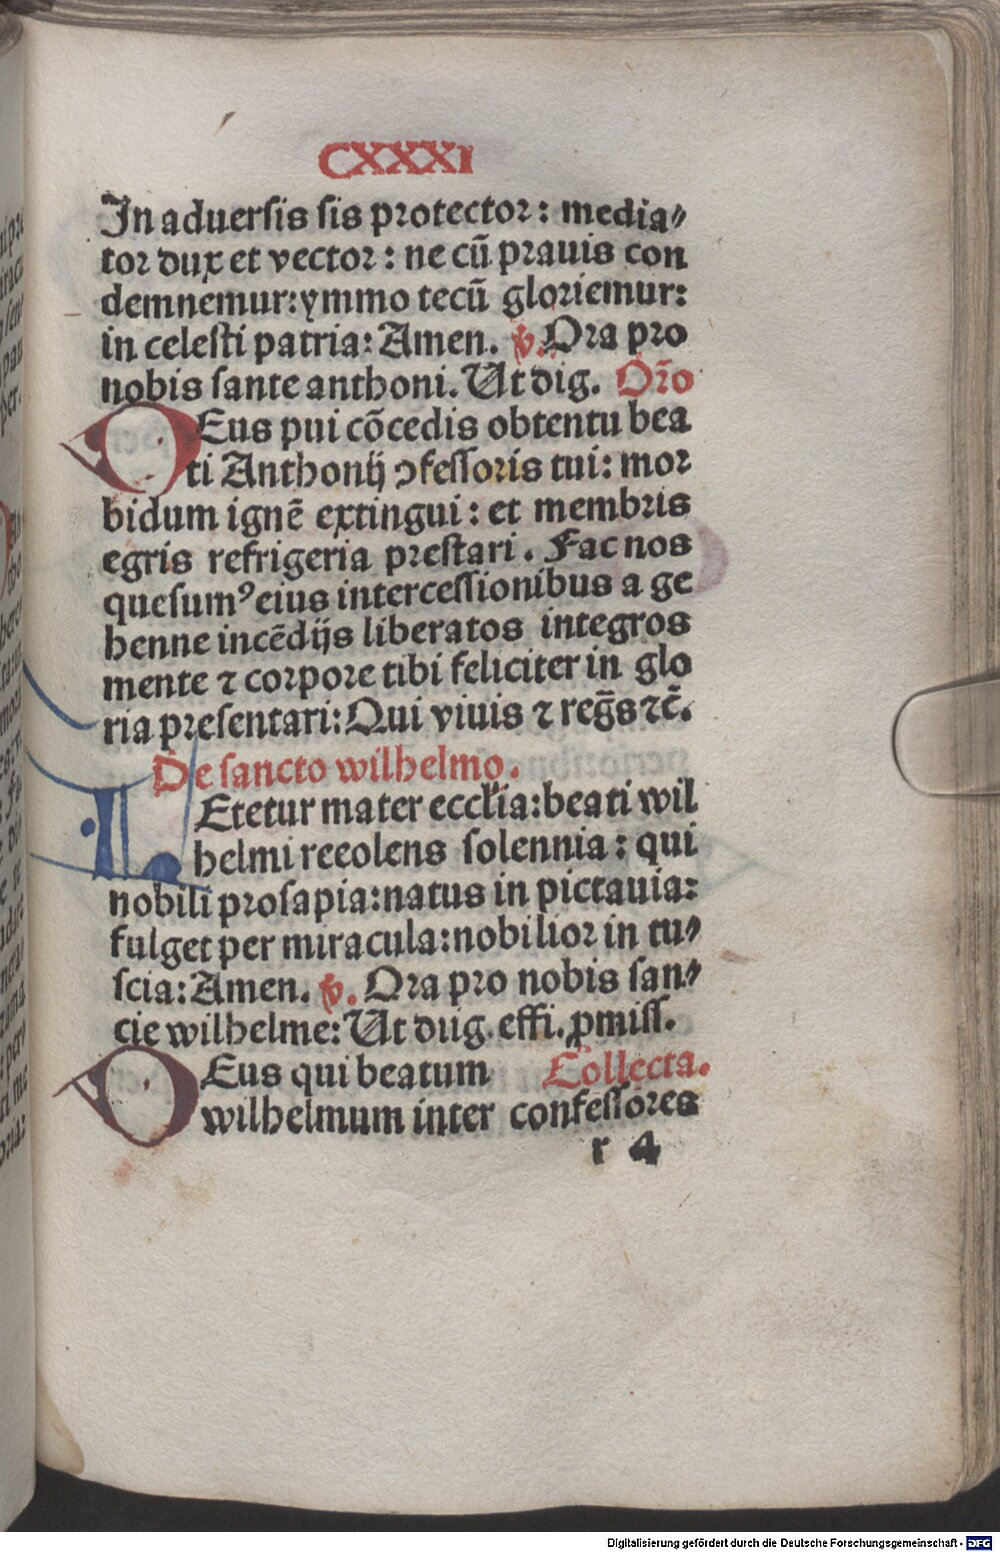 CXXXI
In aduersis sis protector: media⸗
tor dux et vector: ne cū prauis con
demnemur: ymmo tecū gloriemur:
in celesti patria: Amen. ℣. Ora pro
nobis sante anthoni. Ut dig. Orō
DEus pui cōcedis obtentu bea
ti Anthonij ↄfessoris tui: mor
bidum ignē extingui: et membris
egris refrigeria prestari. Fac nos
quesumꝰ eius intercessionibus a ge
henne incēdijs liberatos integros
mente ⁊ corpore tibi feliciter in glo
ria presentari: Qui viuis ⁊ regs̄ ⁊c̄.
De sancto wilhelmo.
LEtetur mater eccl̄ia: beati wil
helmi reeolens solennia: qui
nobili prosapia: natus in pictauia:
fulget per miracula: nobilior in tu⸗
scia: Amen. ℣. Ora pro nobis san⸗
cte wilhelme: Ut diig. effi. ꝓmiss.
DEus qui beatum Collecta.
wilhelmum inter confessores
r 4
Digitalisierung gefördert durch die Deutsche Forschungsgemeinschaft - DFG